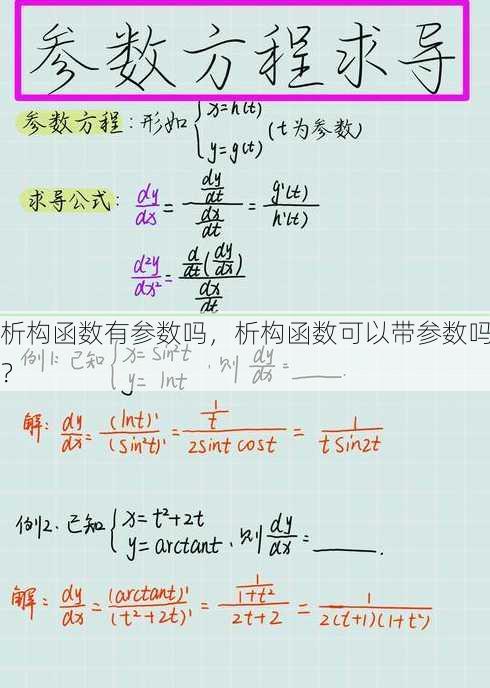 参数方程求导
参数方程：形如 { x=h(t) (t为参数)
y=g(t)
求导公式： dy/dx = (dy/dt)/(dx/dt) = g'(t)/h'(t)
d²y/dx² = (d/dt(dy/dx))/(dx/dt)
析构函数有参数吗，析构函数可以带参数吗
？
例1：已知 { x=sin²t , 则 dy/dx = ____.
y= lnt
解：dy/dx = (lnt)'/(sin²t)' = (1/t)/(2sint cost) = 1/(t sin2t)
例2. 已知 { x=t²+2t
y=arctant , 则 dy/dx = ____.
解：dy/dx = (arctant)'/(t²+2t)' = (1/(1+t²))/(2t+2) = 1/(2(t+1)(1+t²))